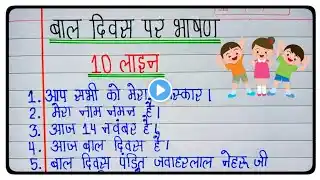 बाल दिवस पर भाषण
10 लाइन
1. आप सभी को मेरा स्कार।
2. मेरा नाम नमन है।
3. आज 14 नवंबर है।
4. आज बाल दिवस है।
5. बाल दिवस पंडित जवाहरलाल नेहरू जी